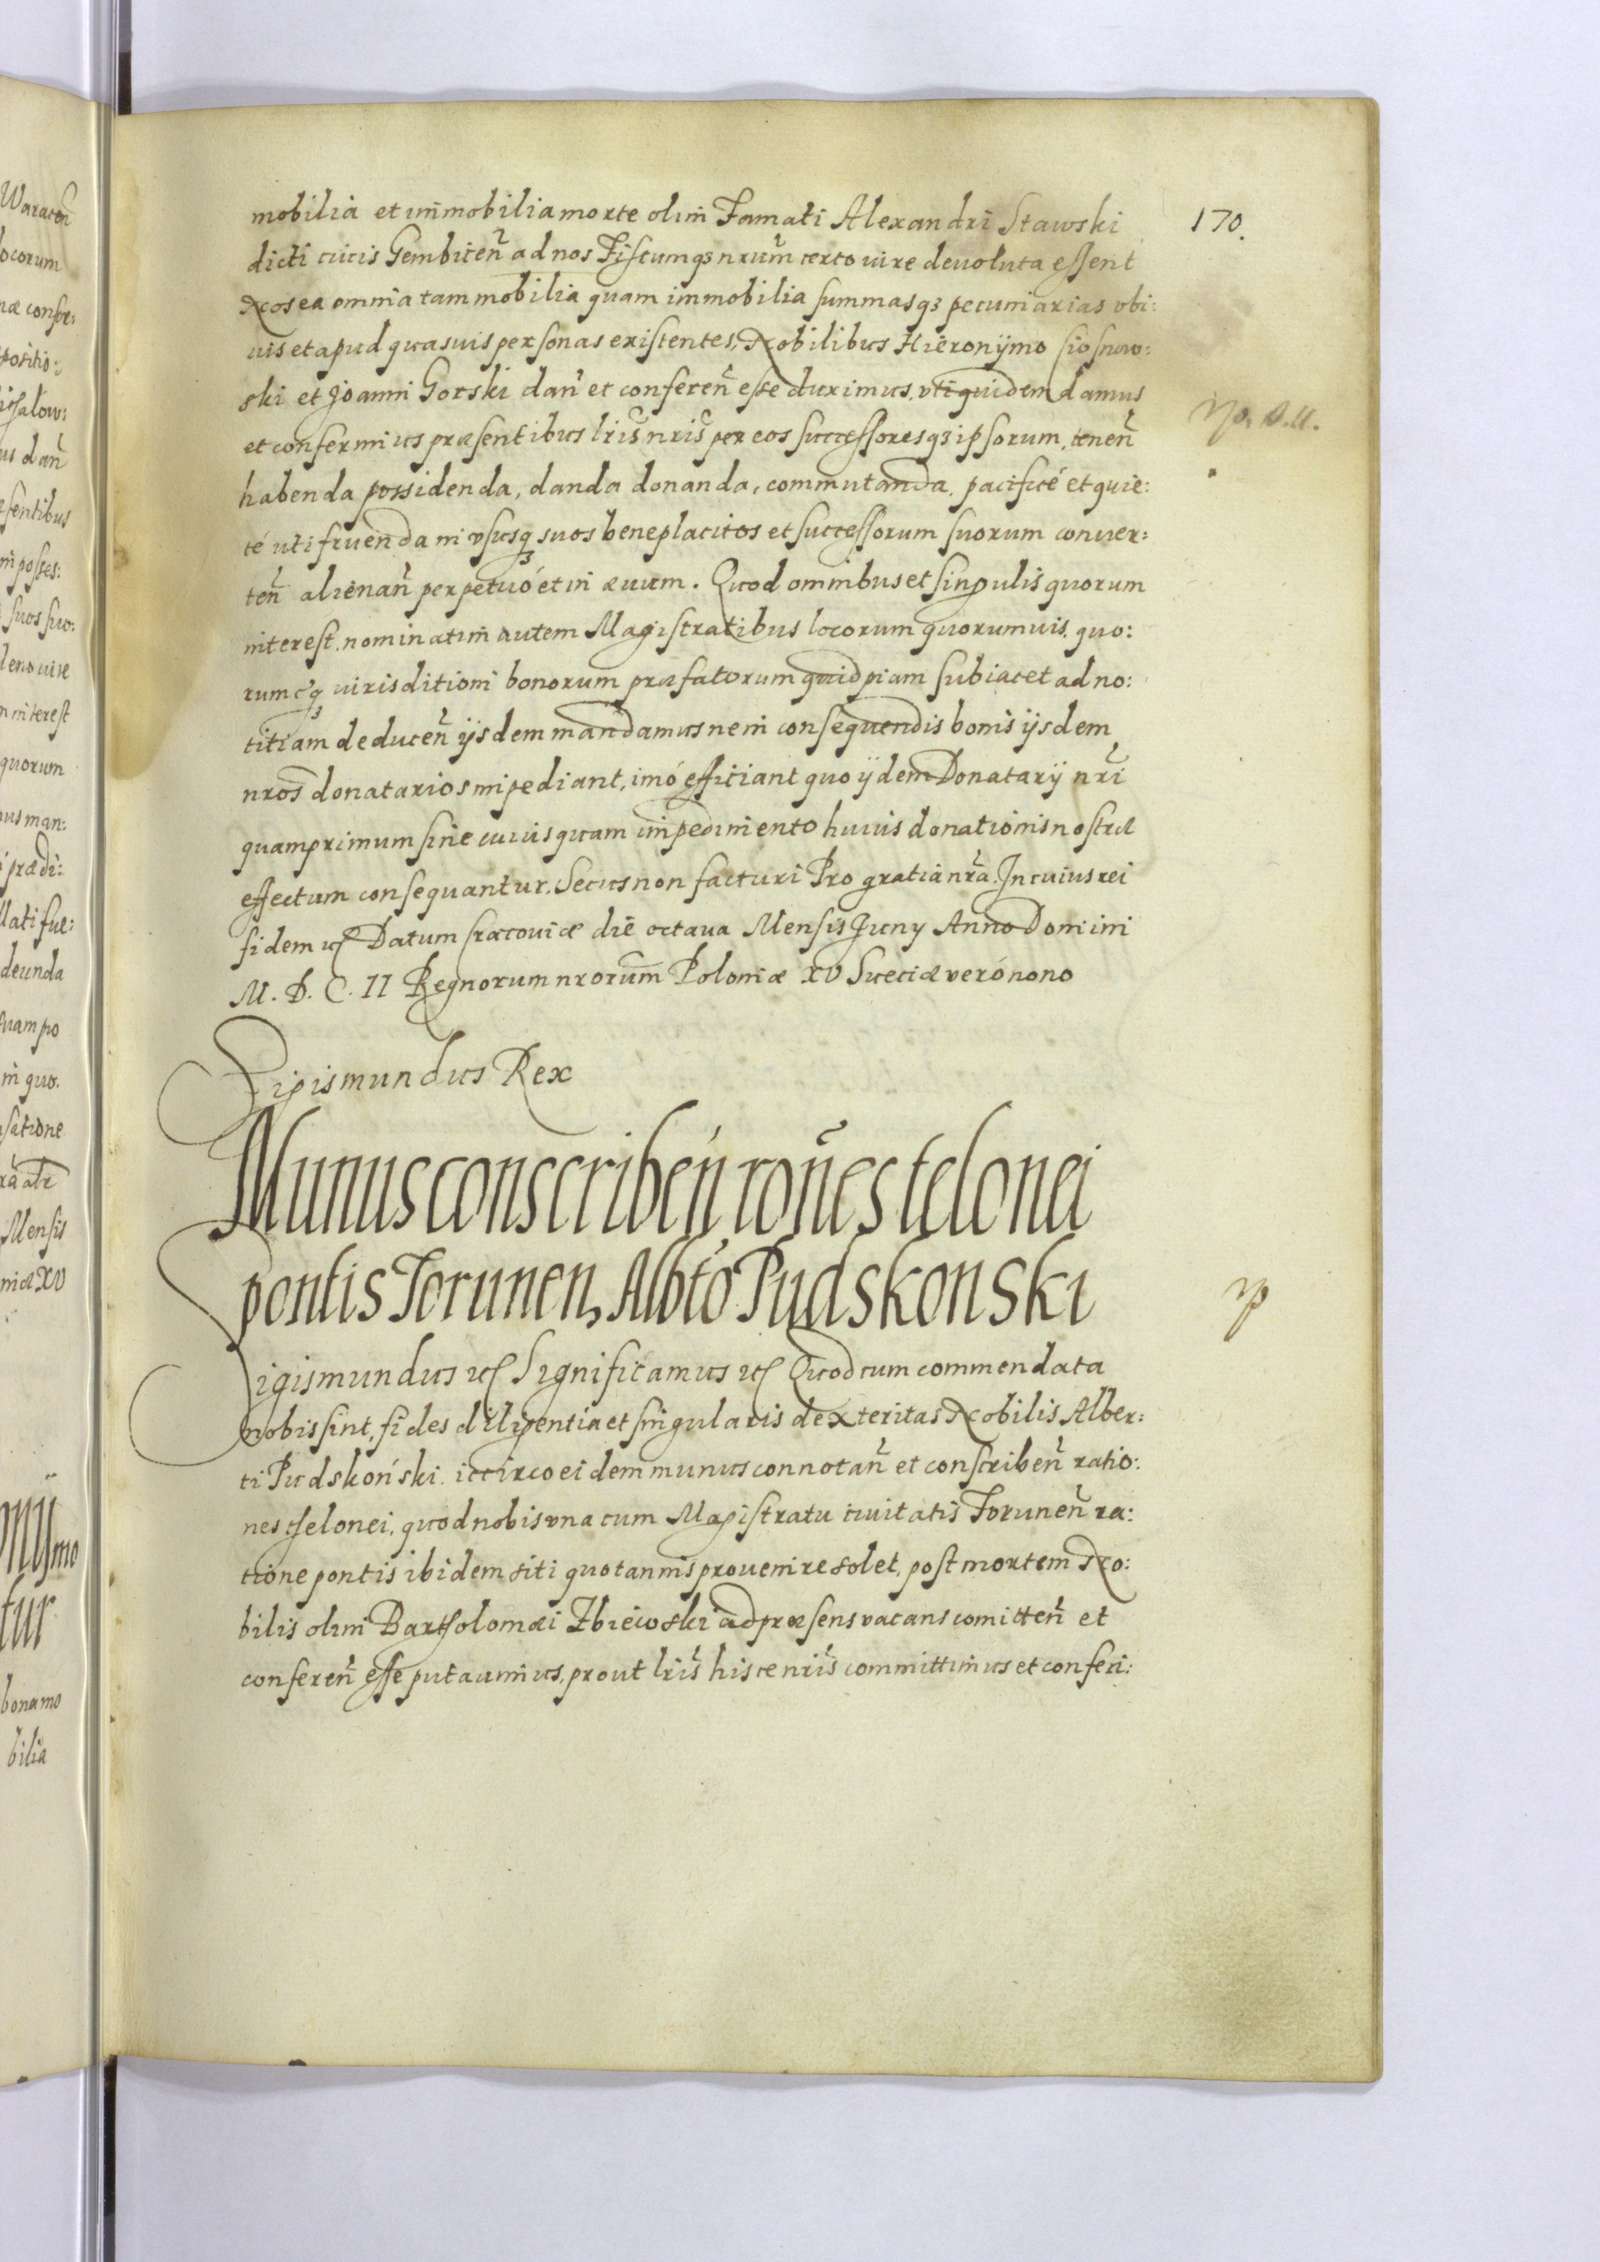 170.
mobilia et immobilia morte olim Famati Alexandri Stawski
dicti civis Gembiceñ ad nos Fiscumqȝ nrum̃ certo iure devoluta essent
Nos ea omnia tam mobilia quam immobilia summasqȝ pecuniarias vbi:
uis et apud quasuis personas existentes, Nobilibus Hieronymo
ski et Joanni Gorski dañ et confereñ esse duximus, vti quidem damus
et conferimus præsentibus lris̃ nris̃ per eos successoresqȝ ipsorum, teneñ
habenda possidenda, danda donanda, commutanda, pacificé et quie:
té uti fruenda in vsusqȝ suos beneplacitos et successorum suorum conuer:
teñ alienañ perpetuó et in æuum. Quod omnibus et singulis quorum
interest, nominatim autem Magistratibus locorum quorumuis, quo:
rumcqȝ iurisditioni bonorum præfatorum quidpiam subiacet ad no:
titiam deduceñ ijsdem mandamus ne in consequendis bonis ijsdem
nros̃ donatarios impediant, imó efficiant quo ijdem Donatarij nri̾
quamprimum sine cuiusquam impedimento huius donationis nostræ
effectum consequantur. Secus non facturi Pro gratia nrã. In cuius rei
fidem etc Datum Cracouiæ die octaua Mensis Juny Anno Domini
M. D. C. II Regnorum nrorum̃ Poloniæ XV Sueciæ veró nono
Sigismundus Rex
Munus conscribeñ roñes telonei
pontis Torunen, Albto Pudskonski
Sigismundus etc Significamus etc Quod cum commendata
nobis sint, fides diligentia et singularis dexteritas Nobilis Alber:
ti Pudskoński iccirco eidem munus connotañ et conscribeñ ratio:
nes thelonei, quod nobis vna cum Magistratu ciuitatis Toruneñ ra:
tione pontis ibidem siti quotannis prouenire solet, post mortem No:
bilis olim Bartholomæi Zbiewski ad præsens vacans comitteñ et
confereñ esse putauimus, prout lris̃ hisce nris̃ committimus et conferi: